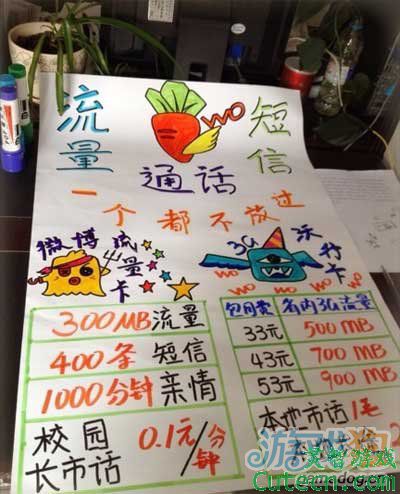 流量
WO
短信
通话
一个都不放过
微博流量卡
3G沃行卡
WO WO WO
300MB流量
400条 短信
1000分钟 亲情
校园长市话 0.1元/分钟
包月费 省内3G流量
33元 500MB
43元 700MB
53元 900MB
本地市话 1毛
游戏狗